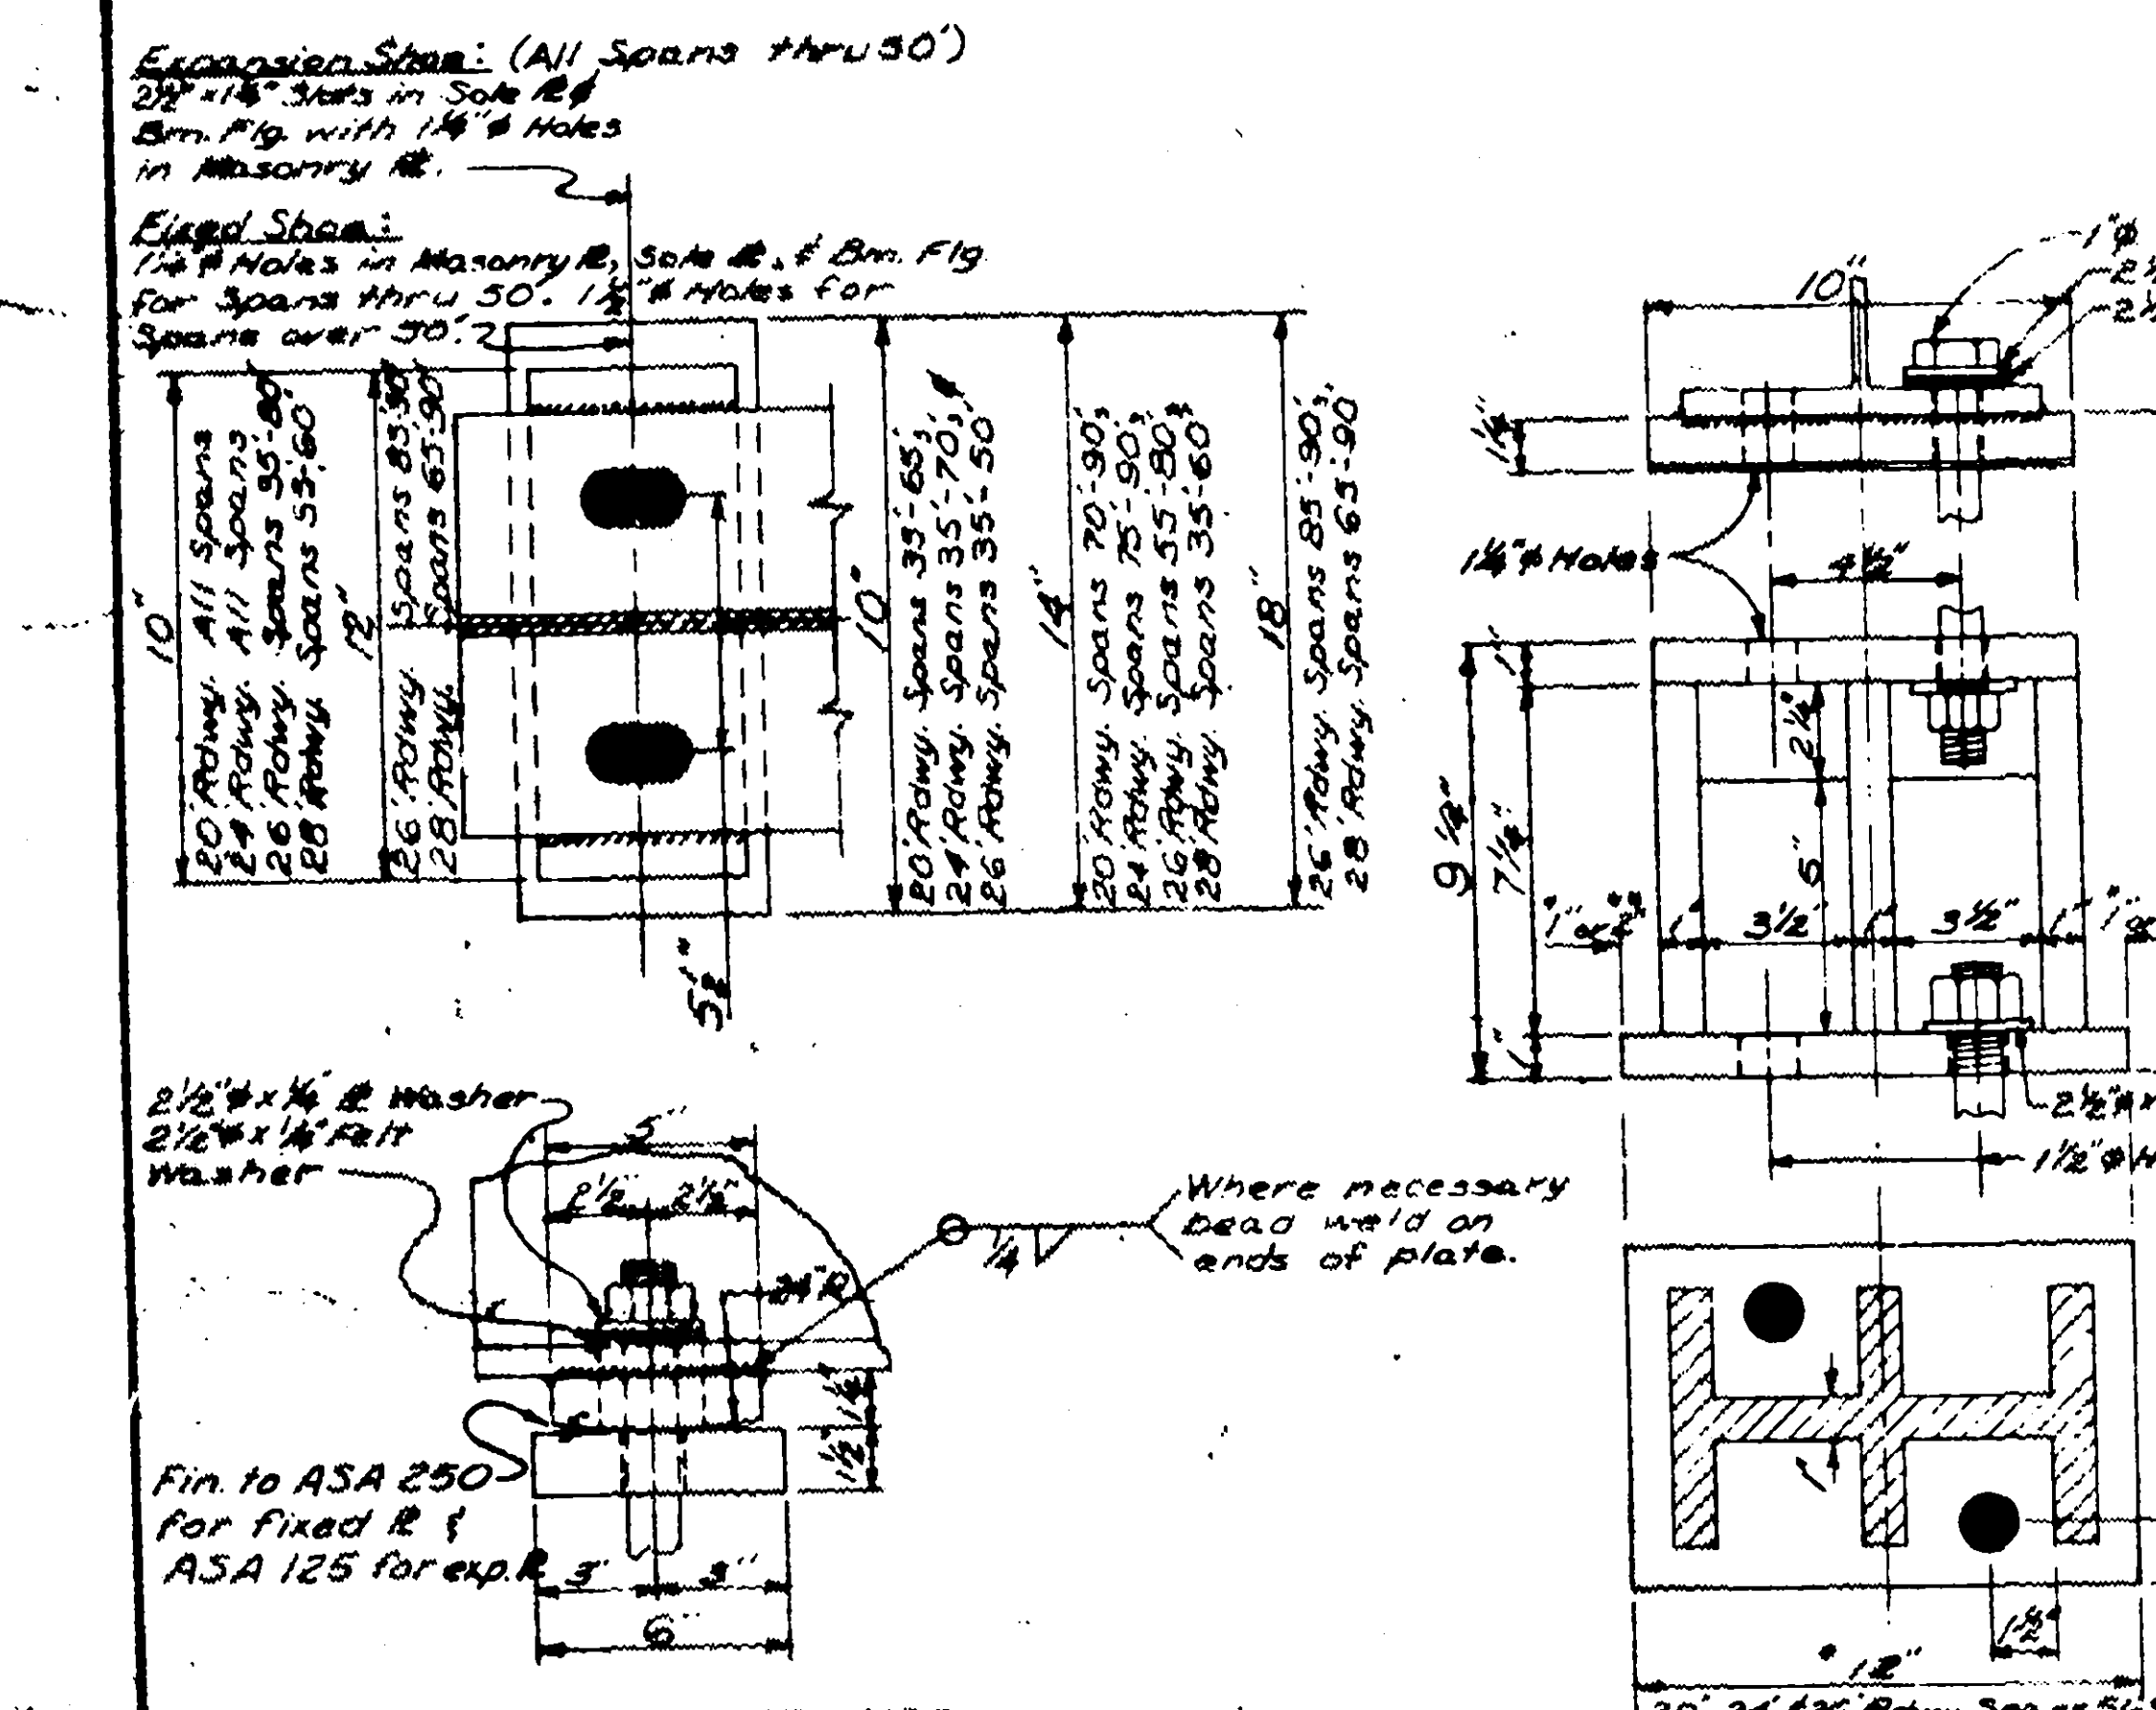 Expansion Shoe: (All Spans thru 50')
2½" x 1¼" Slots in Sole ℄ &
Bm. Flg. with 1¼"⌀ Holes
in Masonry ℄.
Fixed Shoe:
1¼"⌀ Holes in Masonry ℄, Sole ℄, & Bm. Flg
for Spans thru 50'. 1½"⌀ Holes for
Spans over 50'.
10"
20' Rdwy. All Spans
24' Rdwy. All Spans
26' Rdwy. Spans 35'-80'
28' Rdwy. Spans 55'-60'
12"
26' Rdwy. Spans 85'-90'
28' Rdwy. Spans 65'-90'
10"
20' Rdwy. Spans 35'-65',
24' Rdwy. Spans 35'-70', &
26' Rdwy. Spans 35'-50'
14"
20' Rdwy. Spans 70'-90',
24' Rdwy. Spans 75'-90',
26' Rdwy. Spans 55'-80',
28' Rdwy. Spans 35'-60'
18"
26' Rdwy. Spans 85'-90',
28' Rdwy. Spans 65'-90'
5½"
10"
1"⌀
1¼"
1¼"⌀ Holes
4½"
1"
2¼"
9¼"
7¼"
5"
1" or 2"
1"
3½"
1"
3½"
1"
1"
1"
2½"⌀ x
1½"⌀
2½"⌀ x ¼" ℄ Washer
2½"⌀ x ¼" Felt
Washer
5"
2½" 2½"
¼
Where necessary
bead weld on
ends of plate.
1¼"
1½"
Fin. to ASA 250
for fixed ℄ &
ASA 125 for exp. ℄
3" 3"
6"
1"
1½"
12"